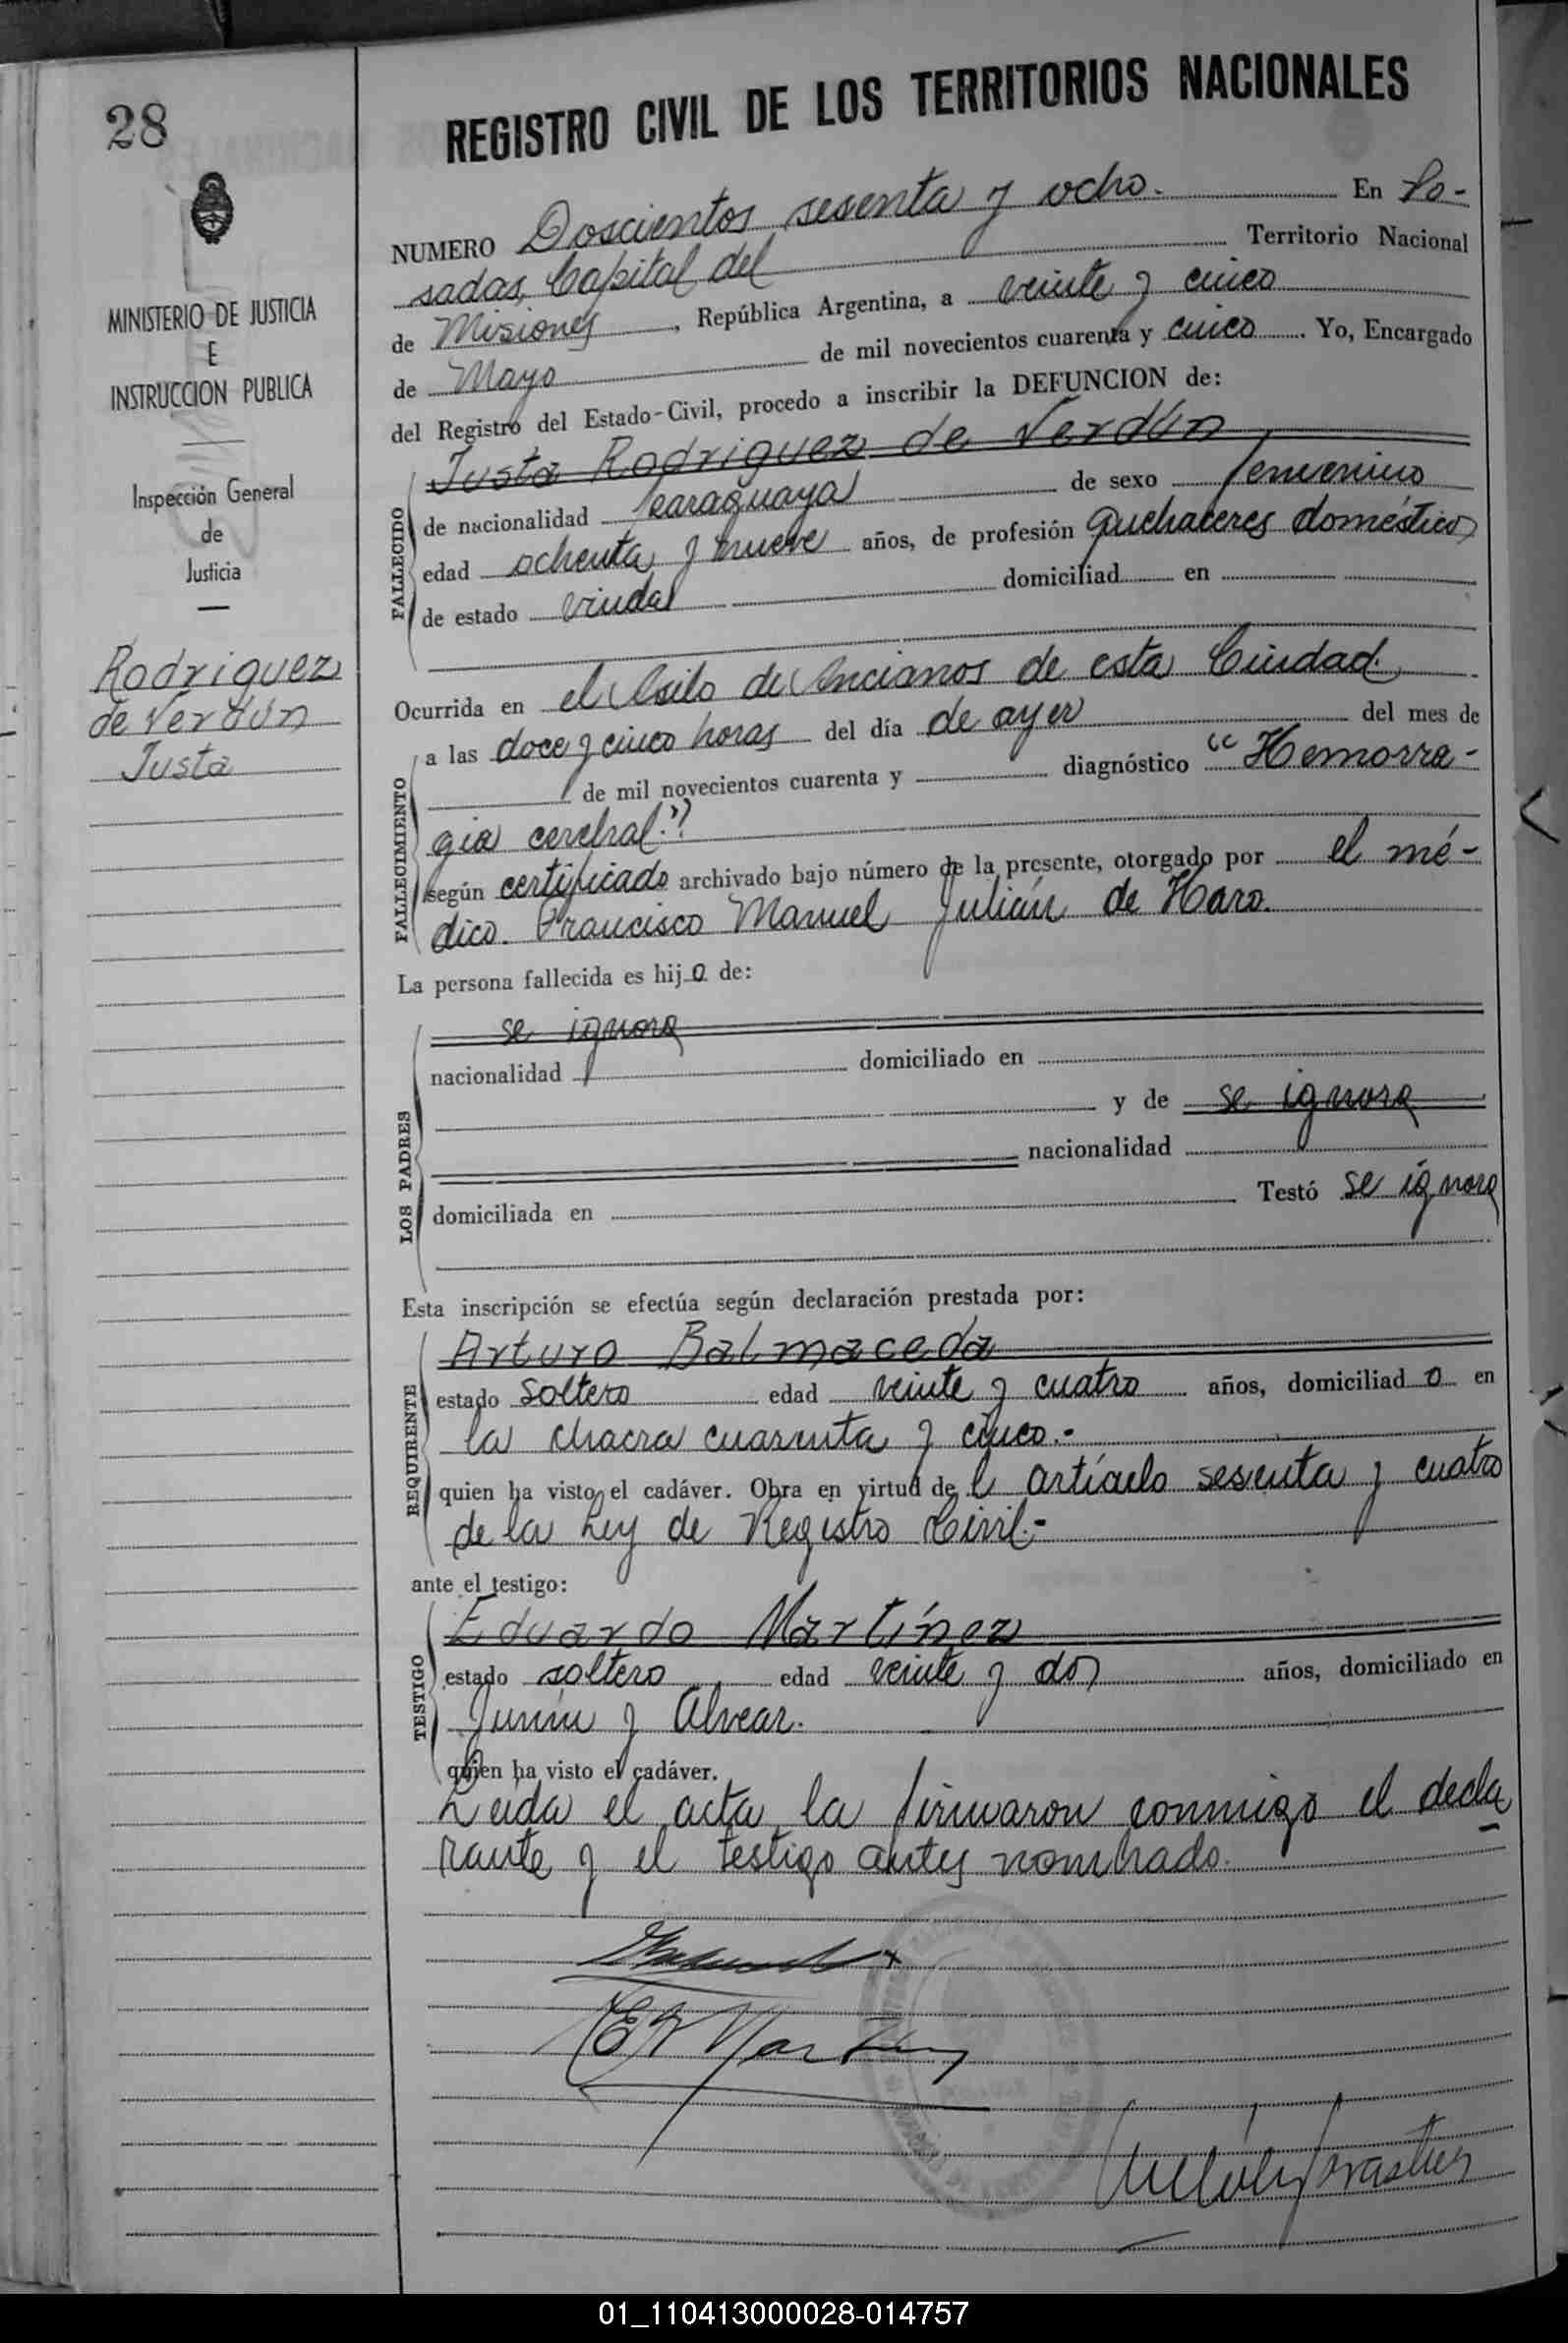 28
MINISTERIO DE JUSTICIA
E
INSTRUCCION PUBLICA
Inspección General
de
Justicia
Rodriguez
de Verdún
Justa
REGISTRO CIVIL DE LOS TERRITORIOS NACIONALES
NUMERO Doscientos sesenta y ocho. En Po-
sadas, Capital del Territorio Nacional
de Misiones, República Argentina, a veinte y cinco
de Mayo de mil novecientos cuarenta y cinco. Yo, Encargado
del Registro del Estado-Civil, procedo a inscribir la DEFUNCION de:
FALLECIDO
Justa Rodriguez de Verdún
de nacionalidad paraguaya de sexo femenino
edad ochenta y nueve años, de profesión quehaceres domésticos
de estado viuda domiciliad en
Ocurrida en el Asilo de Ancianos de esta Ciudad.
FALLECIMIENTO
a las doce y cinco horas del día de ayer del mes de
de mil novecientos cuarenta y diagnóstico "Hemorra-
gia cerebral."
según certificado archivado bajo número de la presente, otorgado por el mé-
dico. Francisco Manuel Julián de Haro.
La persona fallecida es hija de:
LOS PADRES
se ignora
nacionalidad domiciliado en
y de se ignora
nacionalidad
domiciliada en Testó se ignora
Esta inscripción se efectúa según declaración prestada por:
REQUIRENTE
Arturo Balmaceda
estado soltero edad veinte y cuatro años, domiciliado en
la chacra cuarenta y cinco.-
quien ha visto el cadáver. Obra en virtud del artículo sesenta y cuatro
de la Ley de Registro Civil.-
ante el testigo:
TESTIGO
Eduardo Martínez
estado soltero edad veinte y dos años, domiciliado en
Junín y Alvear.
quien ha visto el cadáver.
Leída el acta, la firmaron conmigo el decla
rante y el testigo antes nombrado.
01_110413000028-014757